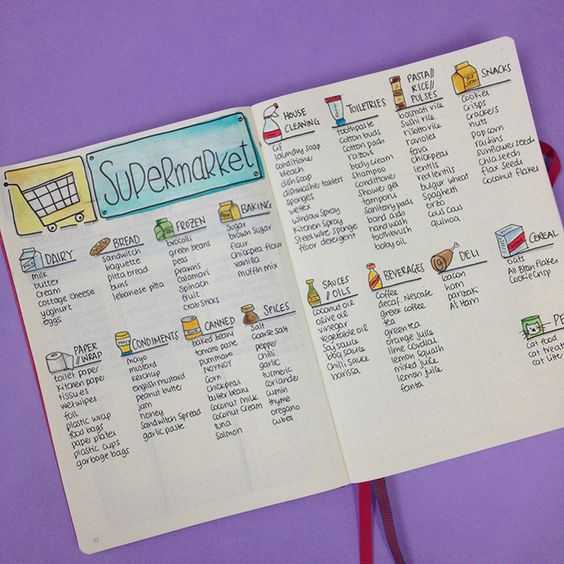 SUPERMARKET
DAIRY
milk
butter
cream
cottage cheese
yoghurt
eggs
BREAD
sandwitch
baguette
pitta bread
buns
lebanese pita
FROZEN
brocoli
green beans
peas
prawns
calamari
spinach
fruit
crab sticks
BAKING
sugar
brown sugar
flour
chickpea flour
vanilla
muffin mix
PAPER
//WRAP
toilet paper
kitchen paper
tissues
wetwipes
foil
plastic wrap
food bags
paper plates
plastic cups
garbage bags
CONDIMENTS
mayo
mustard
ketchup
english mustard
peanut butter
jam
honey
sandwitch spread
garlic paste
CANNED
baked beans
tomato paste
corn
chickpeas
butter beans
coconut milk
coconut cream
tuna
salmon
SPICES
salt
coarse salt
pepper
chilli
garlic
turmeric
coriander
cumin
thyme
oregano
cubes
HOUSE
CLEANING
cif
laundry soap
conditioner
bleach
dish soap
dishwasher tablets
sponges
wettex
window spray
kitchen spray
steel wire sponge
floor detergent
TOILETRIES
toothpaste
cotton buds
cotton pads
razors
body cream
shampoo
conditioner
shower gel
tampons
sanitary pads
band aids
hand wash
toothbrush
baby oil
PASTA//
RICE//
PULSES
basmati rice
sushi rice
risotto rice
ravioles
fava
chickpeas
lentils
red lentils
bulgur wheat
spaghetti
orzo
cous cous
quinoa
SNACKS
cookies
crisps
crackers
nuts
popcorn
raisins
sunflower seeds
chia seeds
flax seeds
coconut flakes
SAUCES
//OILS
coconut oil
olive oil
vinegar
vegetable oil
soy sauce
bbq sauce
chilli sauce
harissa
BEVERAGES
coffee
decaf. nescafe
greek coffee
tea
green tea
orange juice
lime cordial
lemon squash
mixed juice
lemon juice
fanta
DELI
bacon
ham
parizaki
CEREAL
oats
All Bran Flakes
Cookie Crisp
PE
cat food
cat treats
cat litte